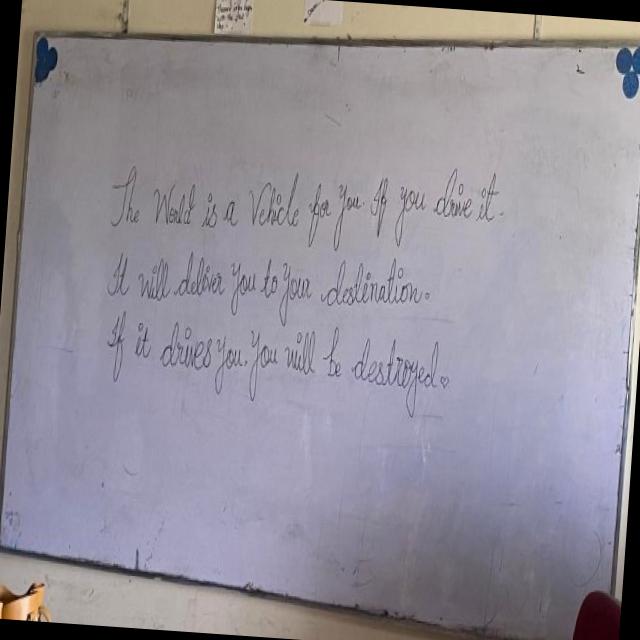 The World is a Vehicle for you. If you drive it.
It will deliver you to your destination.
If it drives you. you will be destroyed.